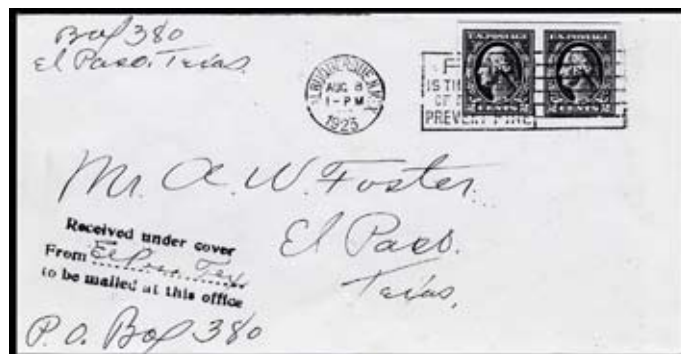 Box 380
El Paso. Texas.
ALBUQUERQUE, N. MEX.
AUG 8
1-PM
1925
F
IS TH
OF
PREVENT FIRE
U.S. POSTAGE U.S. POSTAGE
2 CENTS 2 2 CENTS 2
Mr. A. W. Foster.
El Paso.
Texas.
Received under cover
From El Paso Tex
to be mailed at this office
P.O. Box 380